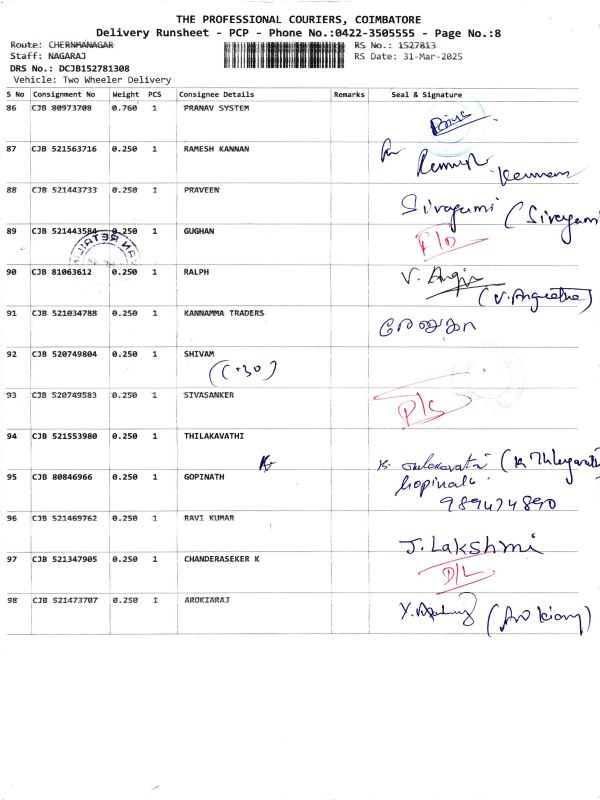 THE PROFESSIONAL COURIERS, COIMBATORE
Delivery Runsheet - PCP - Phone No.:0422-3505555 - Page No.:8
Route: CHERNMANAGAR RS No.: 1527813
Staff: NAGARAJ RS Date: 31-Mar-2025
DRS No.: DCJB152781308
Vehicle: Two Wheeler Delivery
S No Consignment No Weight PCS Consignee Details Remarks Seal & Signature
86 CJB 80973708 0.760 1 PRANAV SYSTEM
87 CJB 521563716 0.250 1 RAMESH KANNAN
Ramesh Kannan
88 CJB 521443733 0.250 1 PRAVEEN
Sivagami (Sivagami
89 CJB 521443584 0.250 1 GUGHAN
90 CJB 81063612 0.250 1 RALPH
V. (V.
91 CJB 521034788 0.250 1 KANNAMMA TRADERS
92 CJB 520749804 0.250 1 SHIVAM
93 CJB 520749583 0.250 1 SIVASANKER
94 CJB 521553980 0.250 1 THILAKAVATHI
95 CJB 80846966 0.250 1 GOPINATH
Gopinath
9894274890
96 CJB 521469762 0.250 1 RAVI KUMAR
J. Lakshmi
97 CJB 521347905 0.250 1 CHANDERASEKER K
D/L
98 CJB 521473707 0.250 1 AROKIARAJ